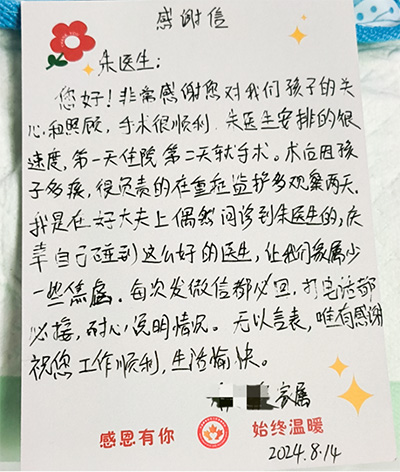 感谢信
朱医生：
您好！非常感谢您对我们孩子的关
心和照顾，手术很顺利，朱医生安排的很
速度，第一天住院第二天就手术。术后因孩
子多痰，很负责的在重症监护多观察两天，
我是在好大夫上偶然问诊到朱医生的，庆
幸自己碰到这么好的医生，让我们家属少
一些焦虑。每次发微信都必回，打电话都
必接，耐心说明情况。无以言表，唯有感谢
祝您工作顺利，生活愉快。
家属
感恩有你 始终温暖
2024.8.14